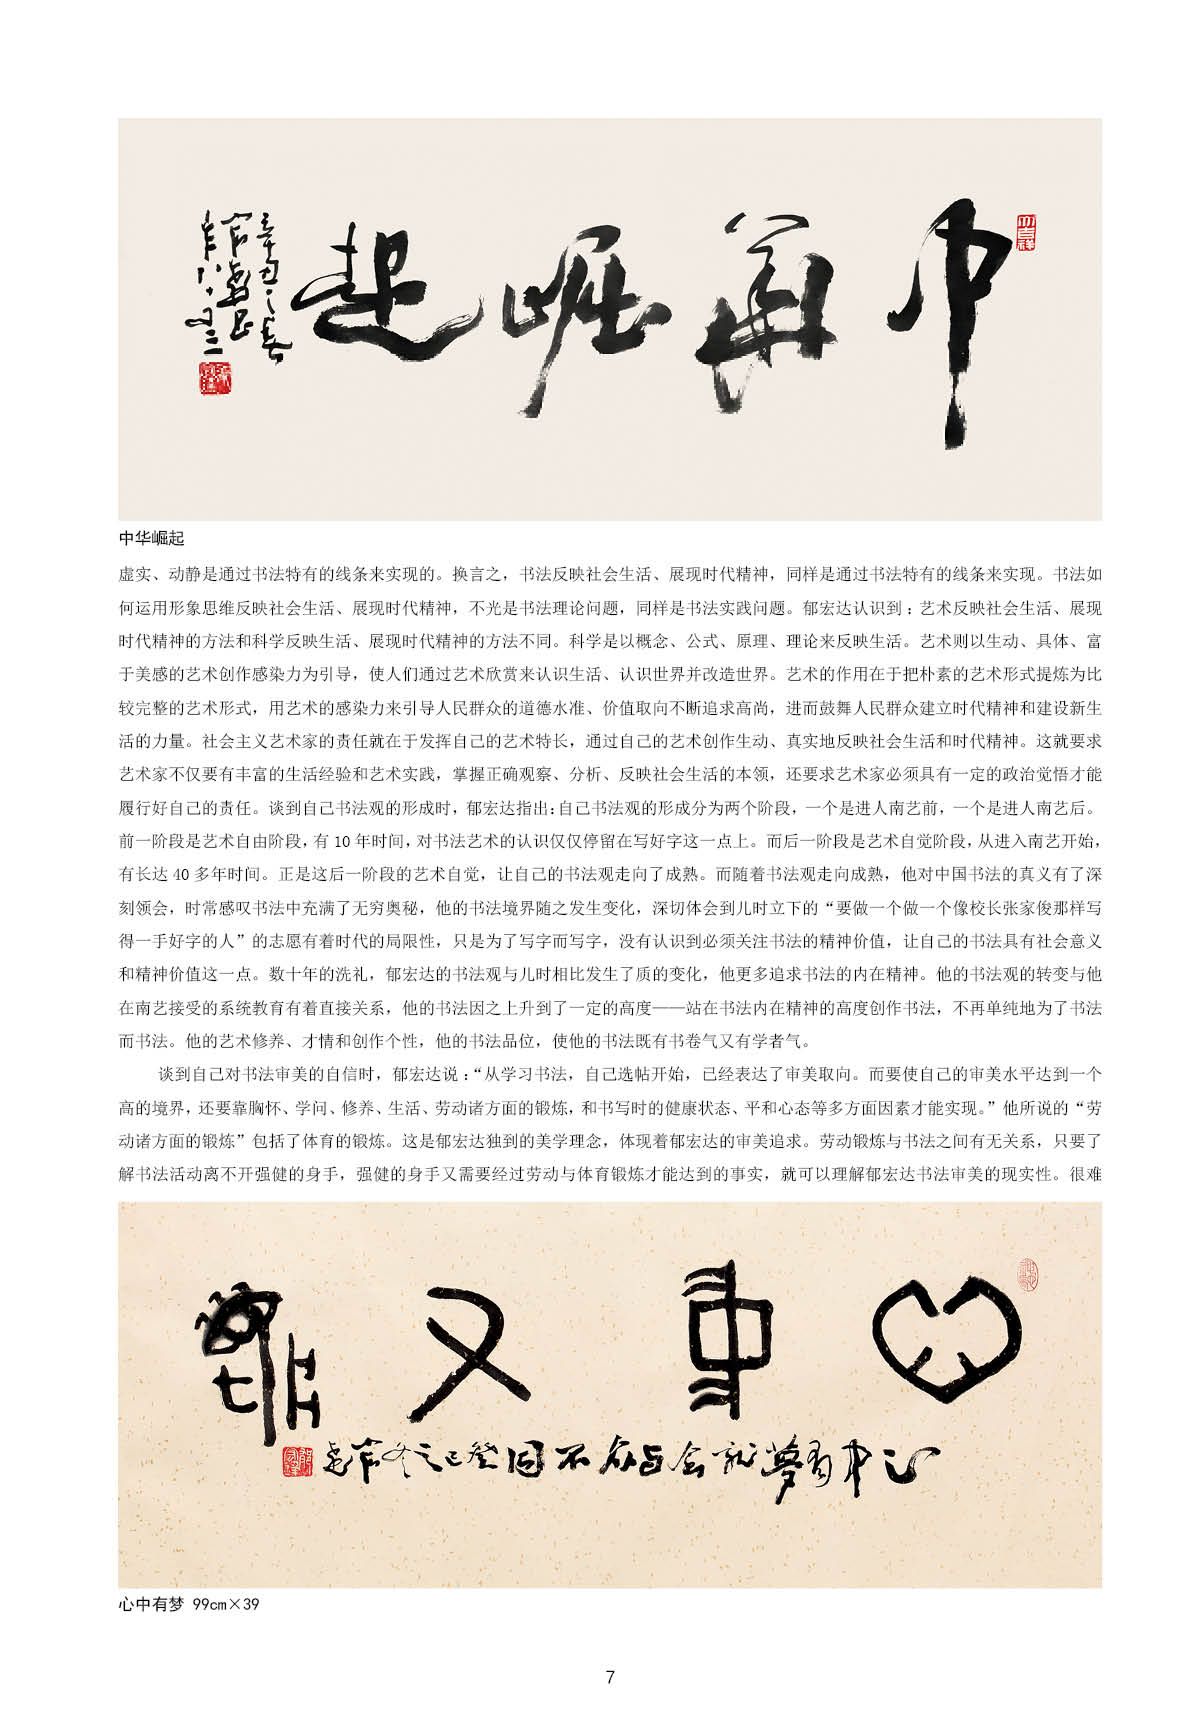 中華崛起
辛丑之春
中华崛起
虚实、动静是通过书法特有的线条来实现的。换言之，书法反映社会生活、展现时代精神，同样是通过书法特有的线条来实现。书法如
何运用形象思维反映社会生活、展现时代精神，不光是书法理论问题，同样是书法实践问题。郁宏达认识到：艺术反映社会生活、展现
时代精神的方法和科学反映生活、展现时代精神的方法不同。科学是以概念、公式、原理、理论来反映生活。艺术则以生动、具体、富
于美感的艺术创作感染力为引导，使人们通过艺术欣赏来认识生活、认识世界并改造世界。艺术的作用在于把朴素的艺术形式提炼为比
较完整的艺术形式，用艺术的感染力来引导人民群众的道德水准、价值取向不断追求高尚，进而鼓舞人民群众建立时代精神和建设新生
活的力量。社会主义艺术家的责任就在于发挥自己的艺术特长，通过自己的艺术创作生动、真实地反映社会生活和时代精神。这就要求
艺术家不仅要有丰富的生活经验和艺术实践，掌握正确观察、分析、反映社会生活的本领，还要求艺术家必须具有一定的政治觉悟才能
履行好自己的责任。谈到自己书法观的形成时，郁宏达指出：自己书法观的形成分为两个阶段，一个是进人南艺前，一个是进人南艺后。
前一阶段是艺术自由阶段，有 10 年时间，对书法艺术的认识仅仅停留在写好字这一点上。而后一阶段是艺术自觉阶段，从进入南艺开始，
有长达 40 多年时间。正是这后一阶段的艺术自觉，让自己的书法观走向了成熟。而随着书法观走向成熟，他对中国书法的真义有了深
刻领会，时常感叹书法中充满了无穷奥秘，他的书法境界随之发生变化，深切体会到儿时立下的“要做一个做一个像校长张家俊那样写
得一手好字的人”的志愿有着时代的局限性，只是为了写字而写字，没有认识到必须关注书法的精神价值，让自己的书法具有社会意义
和精神价值这一点。数十年的洗礼，郁宏达的书法观与儿时相比发生了质的变化，他更多追求书法的内在精神。他的书法观的转变与他
在南艺接受的系统教育有着直接关系，他的书法因之上升到了一定的高度——站在书法内在精神的高度创作书法，不再单纯地为了书法
而书法。他的艺术修养、才情和创作个性，他的书法品位，使他的书法既有书卷气又有学者气。
谈到自己对书法审美的自信时，郁宏达说：“从学习书法，自己选帖开始，已经表达了审美取向。而要使自己的审美水平达到一个
高的境界，还要靠胸怀、学问、修养、生活、劳动诸方面的锻炼，和书写时的健康状态、平和心态等多方面因素才能实现。”他所说的“劳
动诸方面的锻炼”包括了体育的锻炼。这是郁宏达独到的美学理念，体现着郁宏达的审美追求。劳动锻炼与书法之间有无关系，只要了
解书法活动离不开强健的身手，强健的身手又需要经过劳动与体育锻炼才能达到的事实，就可以理解郁宏达书法审美的现实性。很难
心中又夢
心中有夢就会与众不同癸巳之冬宏达
心中有梦 99cm×39
7